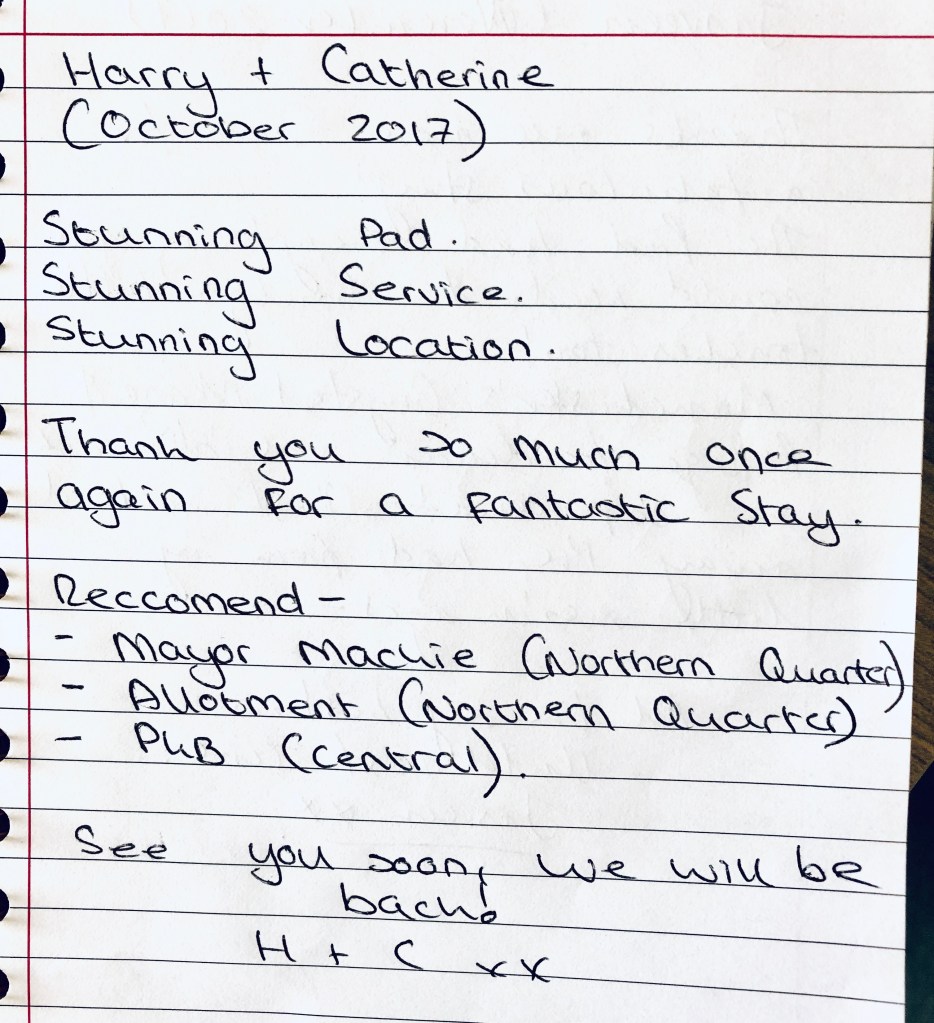 Harry + Catherine
(October 2017)
Stunning Pad.
Stunning Service.
Stunning Location.
Thank you so much once
again for a fantastic Stay.
Reccomend -
- Mayor Mackie (Northern Quarter)
- Allotment (Northern Quarter)
- PUB (Central).
See you soon, we will be
back!
H + C xx